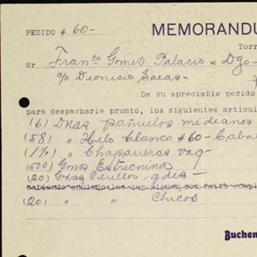 PEDIDO # 60-
MEMORANDU
Torr
Sr Franco Gomez Palacio - Dgo-
c/o Dionisio Salas-
De su apreciable pedido
para despacharle pronto, los siguientes articul
(6) Dnas pañuelos medianos
(58) " Hilo Blanco #60- Cabal
(1½) " Chapareras vaq-
(500) Gmos Estricnina
(20) Ghas Perillos gdes-
(20) " " Chicos
Buchen